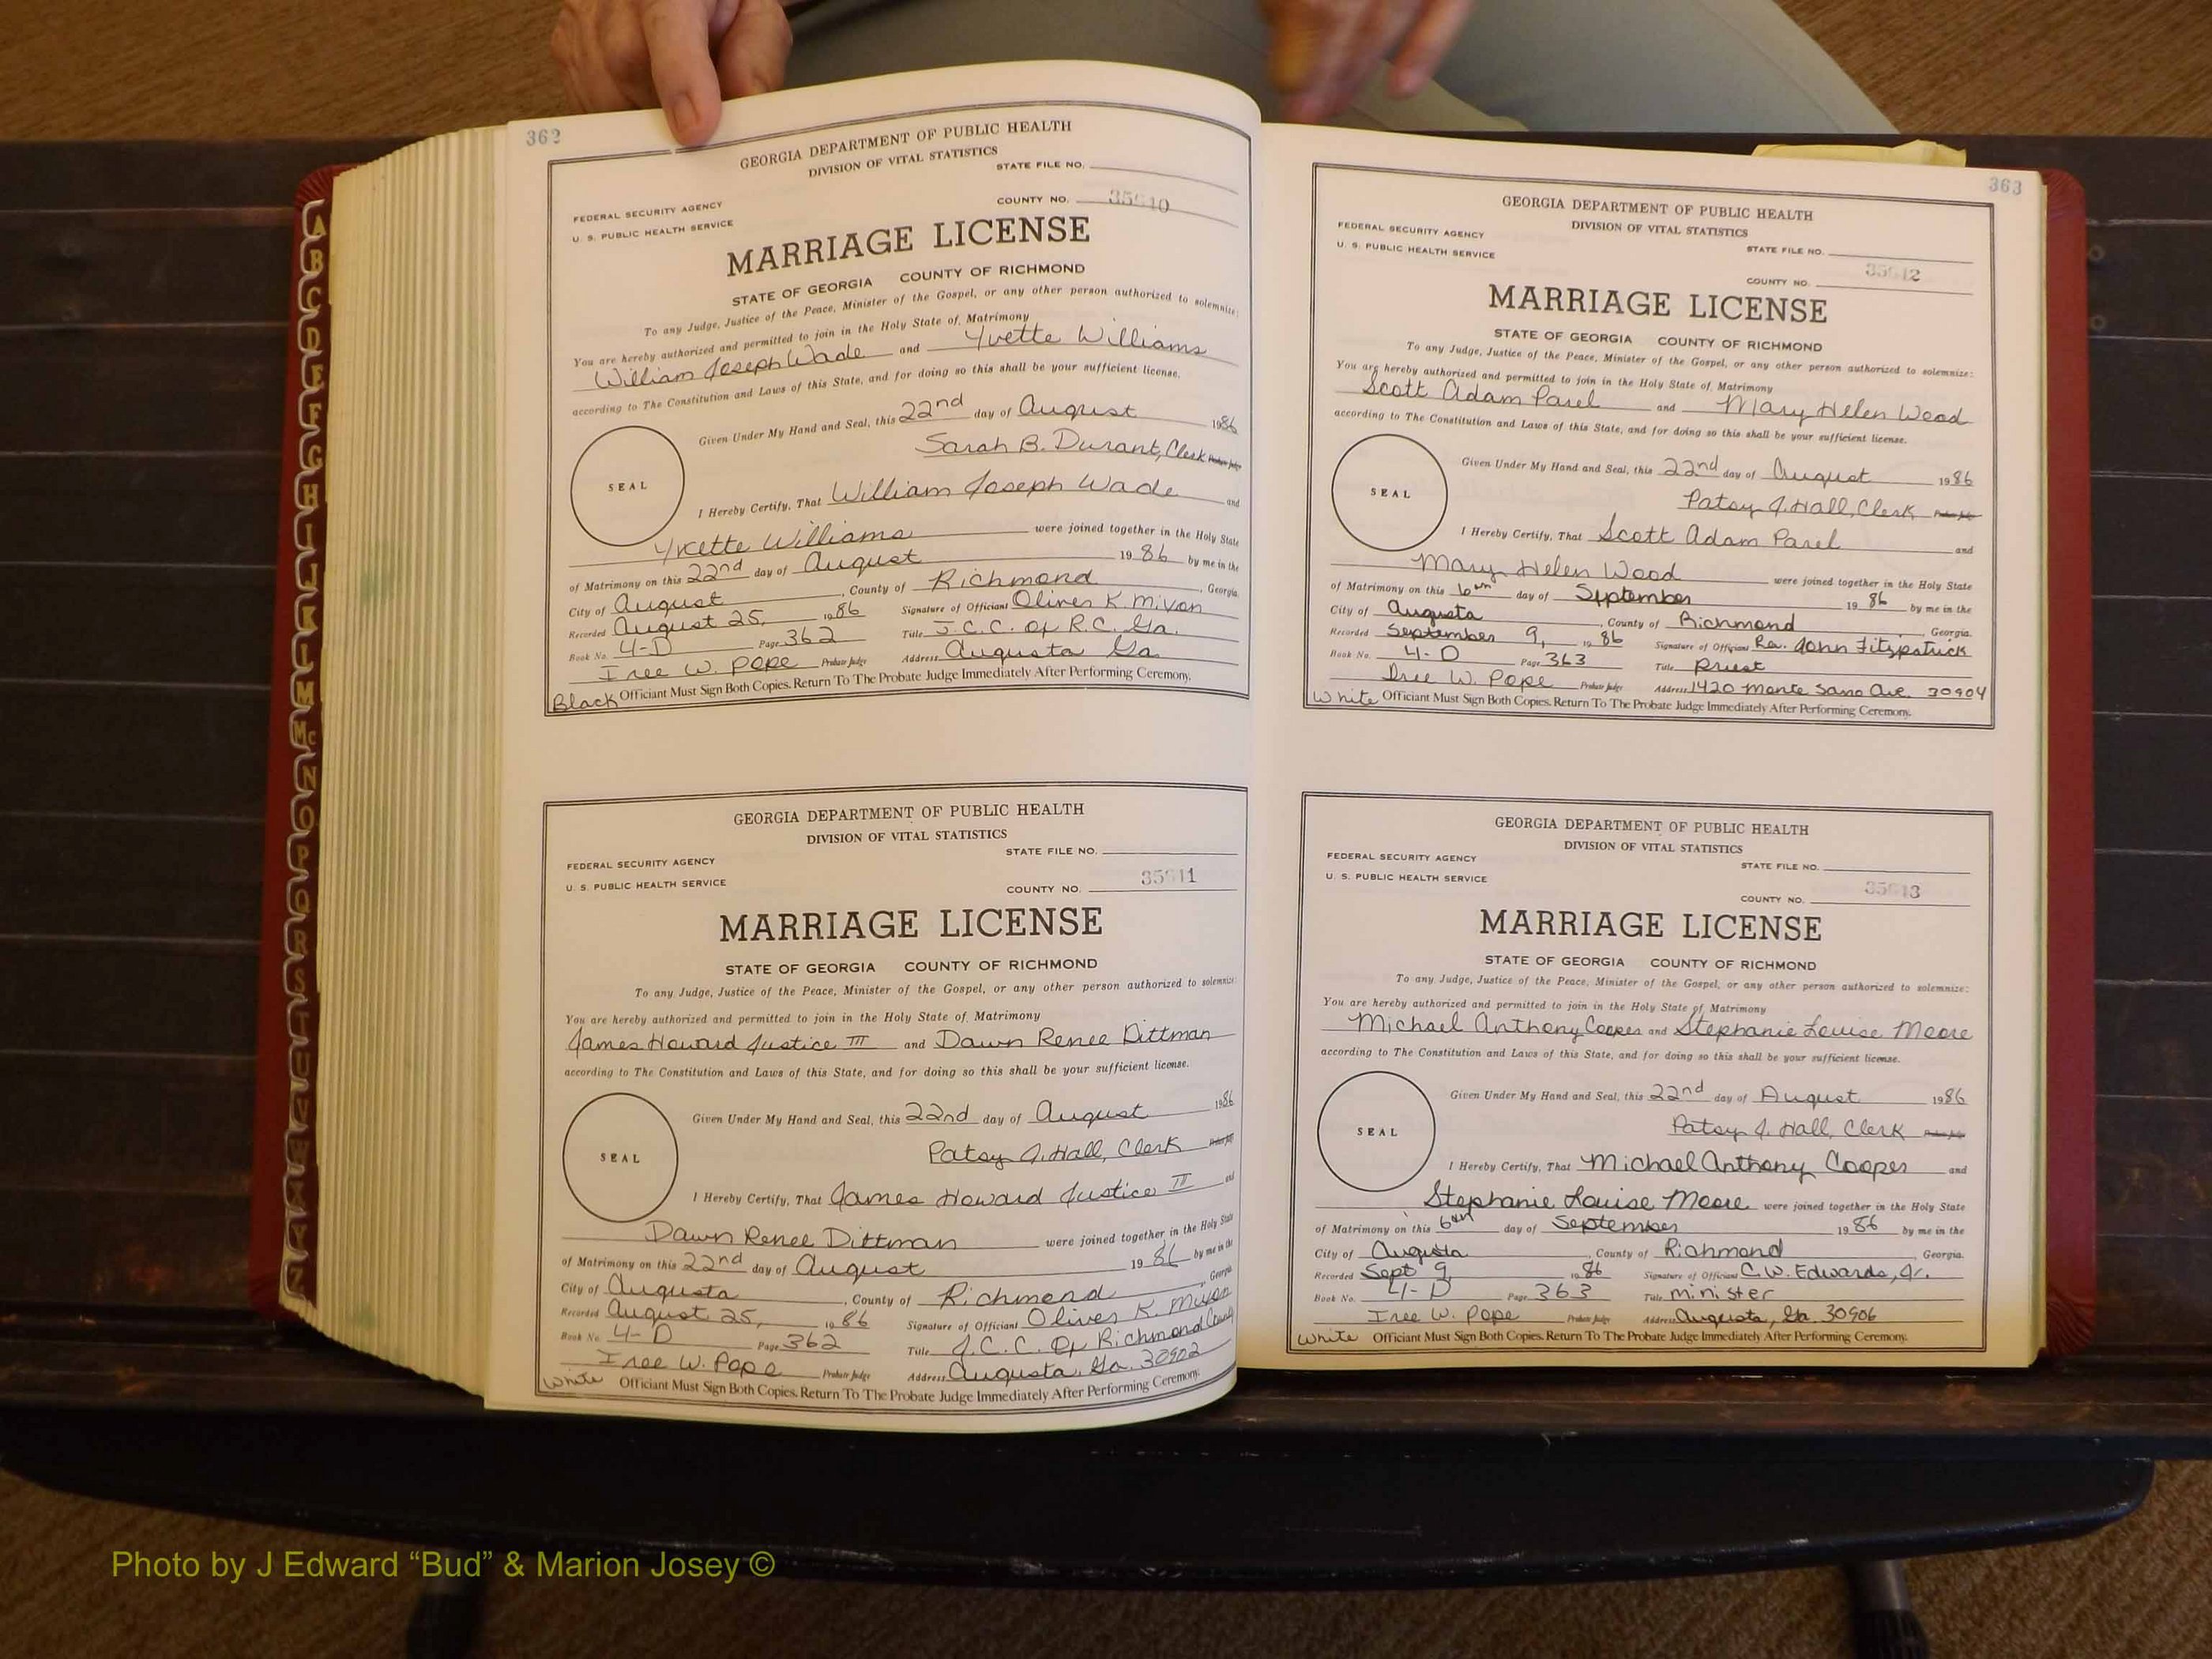 362
GEORGIA DEPARTMENT OF PUBLIC HEALTH
DIVISION OF VITAL STATISTICS
STATE FILE NO.
FEDERAL SECURITY AGENCY
COUNTY NO.
U. S. PUBLIC HEALTH SERVICE
MARRIAGE LICENSE
STATE OF GEORGIA COUNTY OF RICHMOND
To any Judge, Justice of the Peace, Minister of the Gospel, or any other person authorized to solemnize:
You are hereby authorized and permitted to join in the Holy State of Matrimony
William Joseph Wade and Yvette Williams
according to The Constitution and Laws of this State, and for doing so this shall be your sufficient license.
Given Under My Hand and Seal, this 22nd day of August 1986
Sarah B. Durant, Clerk
SEAL
I Hereby Certify, That William Joseph Wade and
Yvette Williams were joined together in the Holy State
of Matrimony on this 22nd day of August 1986 by me in the
City of August, County of Richmond, Georgia.
Recorded August 25, 1986 Signature of Officiant Oliver K. Mixon
Book No. 4-D Page 362 Title J.C.C. Of R.C. Ga.
Iree W. Pope Probate Judge Address Augusta Ga
Black Officiant Must Sign Both Copies. Return To The Probate Judge Immediately After Performing Ceremony.
GEORGIA DEPARTMENT OF PUBLIC HEALTH
DIVISION OF VITAL STATISTICS
STATE FILE NO.
FEDERAL SECURITY AGENCY
COUNTY NO.
U. S. PUBLIC HEALTH SERVICE
MARRIAGE LICENSE
STATE OF GEORGIA COUNTY OF RICHMOND
To any Judge, Justice of the Peace, Minister of the Gospel, or any other person authorized to solemnize:
You are hereby authorized and permitted to join in the Holy State of Matrimony
James Howard Justice III and Dawn Renee Dittman
according to The Constitution and Laws of this State, and for doing so this shall be your sufficient license.
Given Under My Hand and Seal, this 22nd day of August 1986
Patsy J. Hall, Clerk
SEAL
I Hereby Certify, That James Howard Justice III and
Dawn Renee Dittman were joined together in the Holy State
of Matrimony on this 22nd day of August 1986 by me in the
City of Augusta, County of Richmond, Georgia
Recorded August 25, 1986 Signature of Officiant Oliver K. Mixon
Book No. 4-D Page 362 Title J.C.C. Of Richmond County
Iree W. Pope Probate Judge Address Augusta, Ga. 30902
White Officiant Must Sign Both Copies. Return To The Probate Judge Immediately After Performing Ceremony.
363
GEORGIA DEPARTMENT OF PUBLIC HEALTH
DIVISION OF VITAL STATISTICS
FEDERAL SECURITY AGENCY
STATE FILE NO.
U. S. PUBLIC HEALTH SERVICE
COUNTY NO.
MARRIAGE LICENSE
STATE OF GEORGIA COUNTY OF RICHMOND
To any Judge, Justice of the Peace, Minister of the Gospel, or any other person authorized to solemnize:
You are hereby authorized and permitted to join in the Holy State of Matrimony
Scott Adam Parel and Mary Helen Wood
according to The Constitution and Laws of this State, and for doing so this shall be your sufficient license.
Given Under My Hand and Seal, this 22nd day of August 1986
Patsy J. Hall, Clerk
SEAL
I Hereby Certify, That Scott Adam Parel and
Mary Helen Wood were joined together in the Holy State
of Matrimony on this 6th day of September 1986 by me in the
City of Augusta, County of Richmond, Georgia.
Recorded September 9, 1986 Signature of Officiant Rev. John Fitzpatrick
Book No. 4-D Page 363 Title Priest
Iree W. Pope Probate Judge Address 1420 Monte Sano Ave. 30904
White Officiant Must Sign Both Copies. Return To The Probate Judge Immediately After Performing Ceremony.
GEORGIA DEPARTMENT OF PUBLIC HEALTH
DIVISION OF VITAL STATISTICS
FEDERAL SECURITY AGENCY
STATE FILE NO.
U. S. PUBLIC HEALTH SERVICE
COUNTY NO.
MARRIAGE LICENSE
STATE OF GEORGIA COUNTY OF RICHMOND
To any Judge, Justice of the Peace, Minister of the Gospel, or any other person authorized to solemnize:
You are hereby authorized and permitted to join in the Holy State of Matrimony
Michael Anthony Cooper and Stephanie Louise Moore
according to The Constitution and Laws of this State, and for doing so this shall be your sufficient license.
Given Under My Hand and Seal, this 22nd day of August 1986
Patsy J. Hall, Clerk
SEAL
I Hereby Certify, That Michael Anthony Cooper and
Stephanie Louise Moore were joined together in the Holy State
of Matrimony on this 6th day of September 1986 by me in the
City of Augusta, County of Richmond, Georgia.
Recorded Sept 9, 1986 Signature of Officiant C.W. Edwards, Jr.
Book No. 4-D Page 363 Title minister
Iree W. Pope Probate Judge Address Augusta, Ga. 30906
White Officiant Must Sign Both Copies. Return To The Probate Judge Immediately After Performing Ceremony.
Photo by J Edward “Bud” & Marion Josey ©